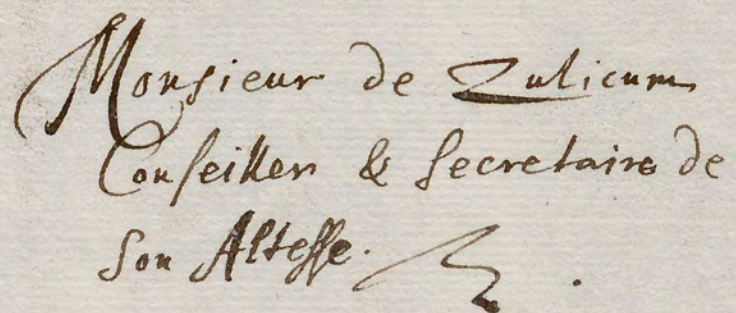 Monsieur de Zulicum
Conseiller & Secretaire de
son Altesse.